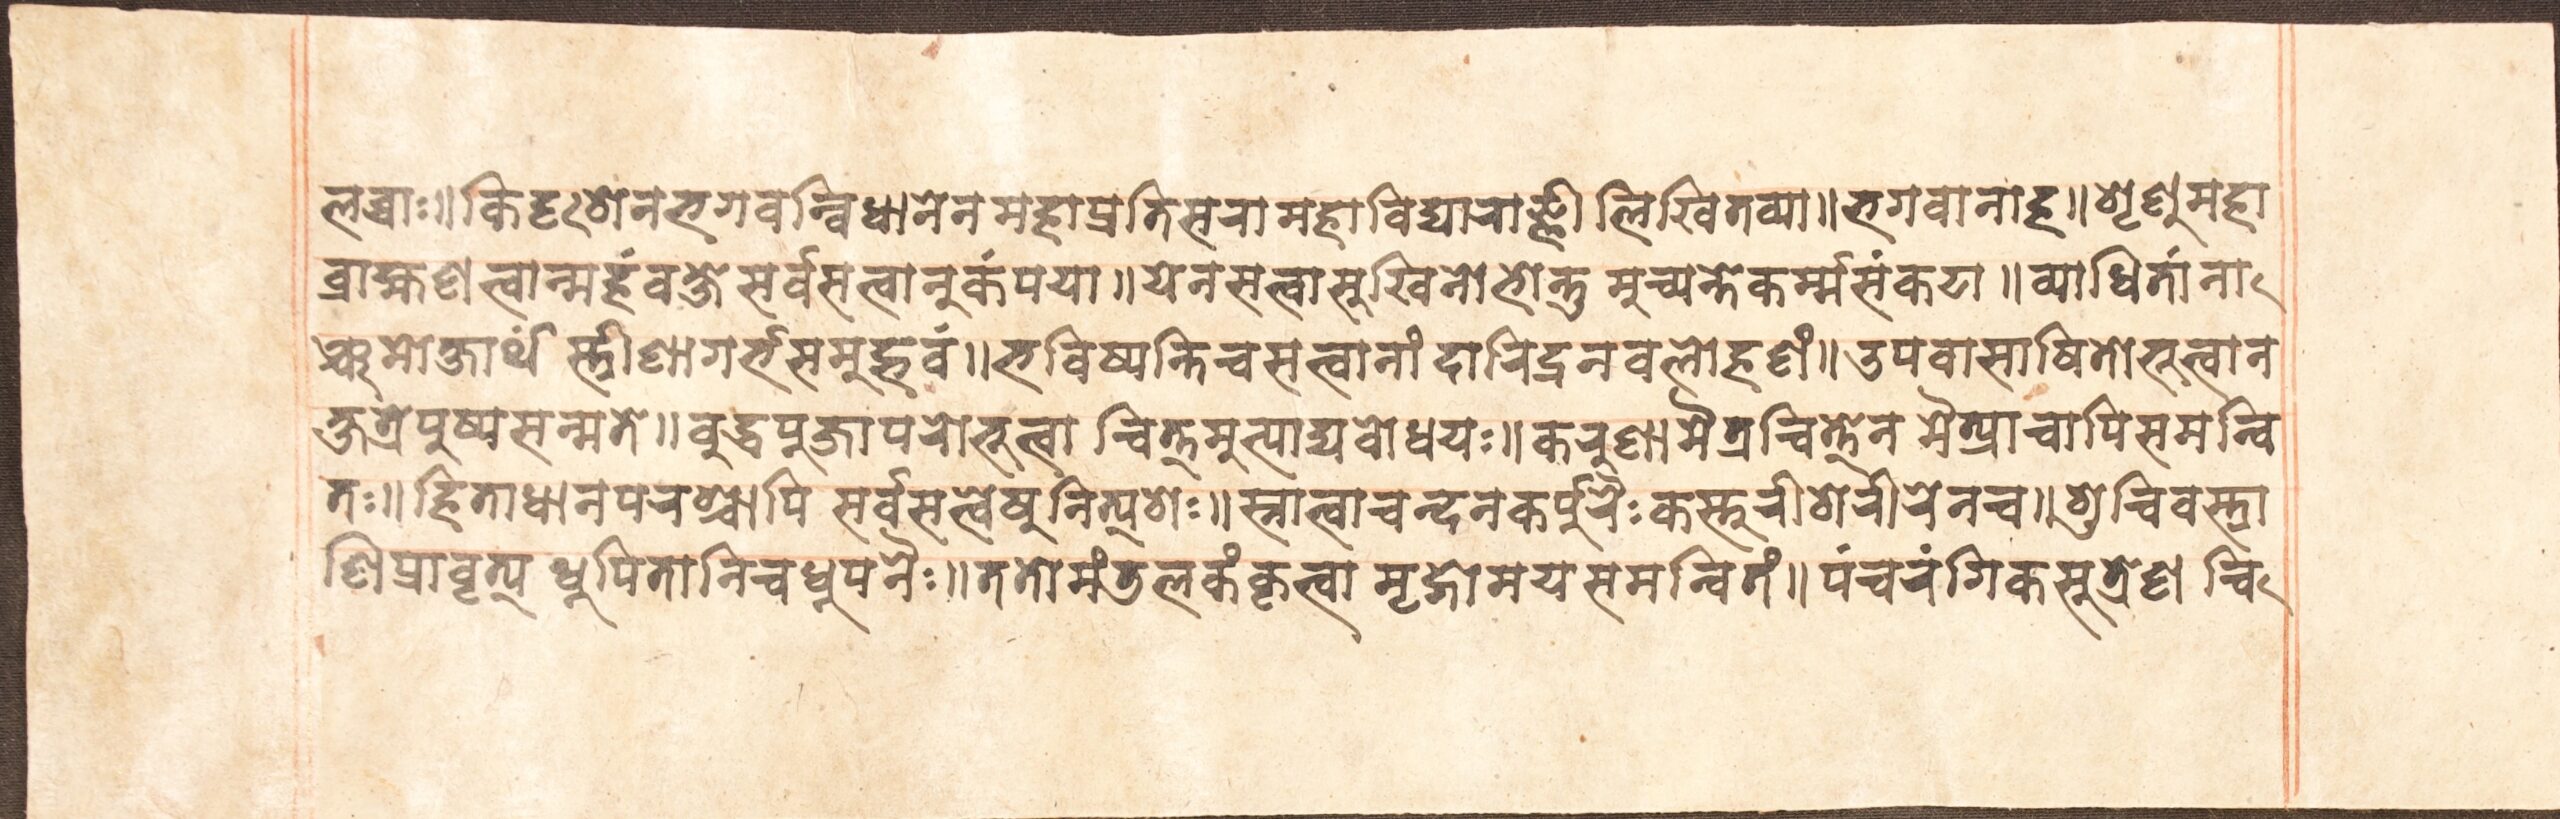 लव्वाः॥किदृशेनभगवन्विधानेनमहाप्रतिसरामहाविद्याराज्ञीलिखितव्या॥भगवानाह॥शृणुमहा
ब्राह्मणत्वान्महंवक्षेसर्वसत्वानुकंपया॥येनसत्वासुखिनोहोन्तु मुच्यन्तेकर्म्मसंकटा॥व्याधितांना
ञ्चमोक्षार्थं स्त्रीणागर्भसमुद्भवं॥भविष्यन्तिचसत्वानां दारिद्रनवलोहणं॥उपवासोषितोभुत्वान
क्षत्रेपुष्यसन्मते॥वुद्धपुजापरोभुत्वा चित्तमुत्पाद्यवोधयः॥करुणामैत्रचित्तेन मैत्र्याचापिसमन्वि
तः॥हिताधानपरश्चापि सर्वसत्वेषुनित्यशः॥स्नात्वाचन्दनकर्पुरैःकस्तुरीशरीरेनच॥शुचिवस्त्रा
णिप्रावृत्य धुपितानिचधुपनैः॥ततोमंडलकंकृत्वा मृद्गोमयसमन्वितं॥पंचरंगिकसुत्रेण चि